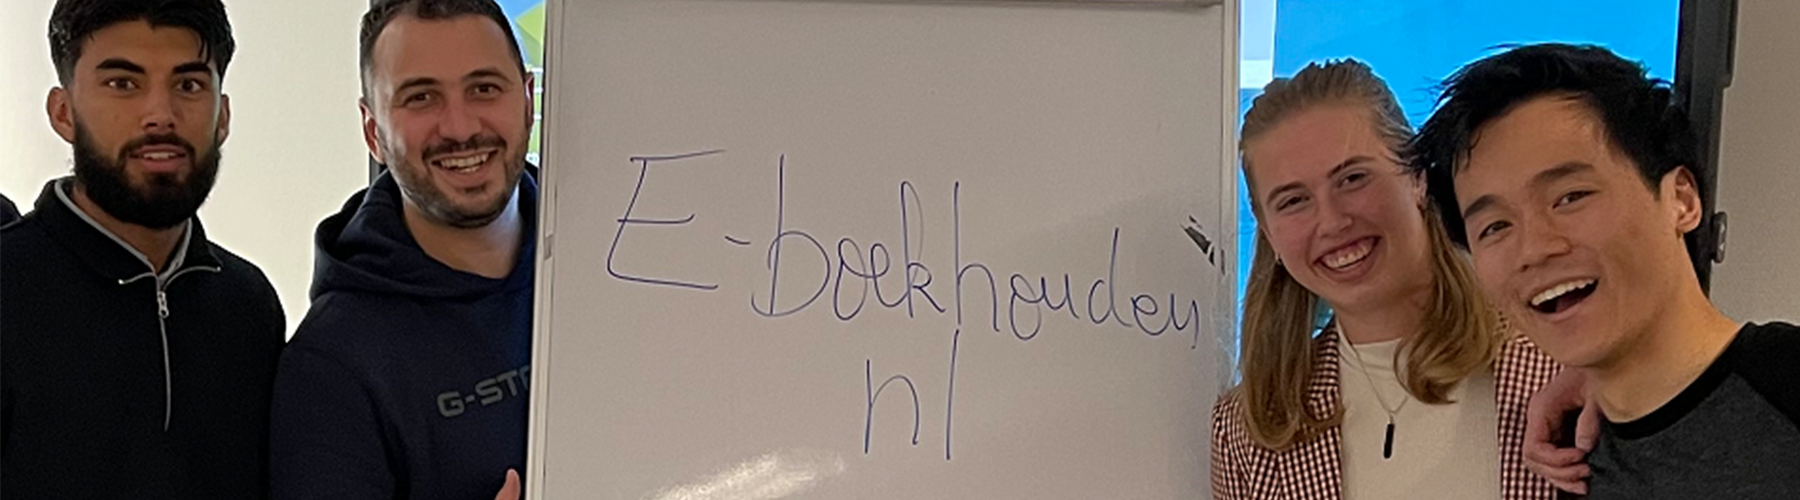 E-boekhouden
nl
G-ST